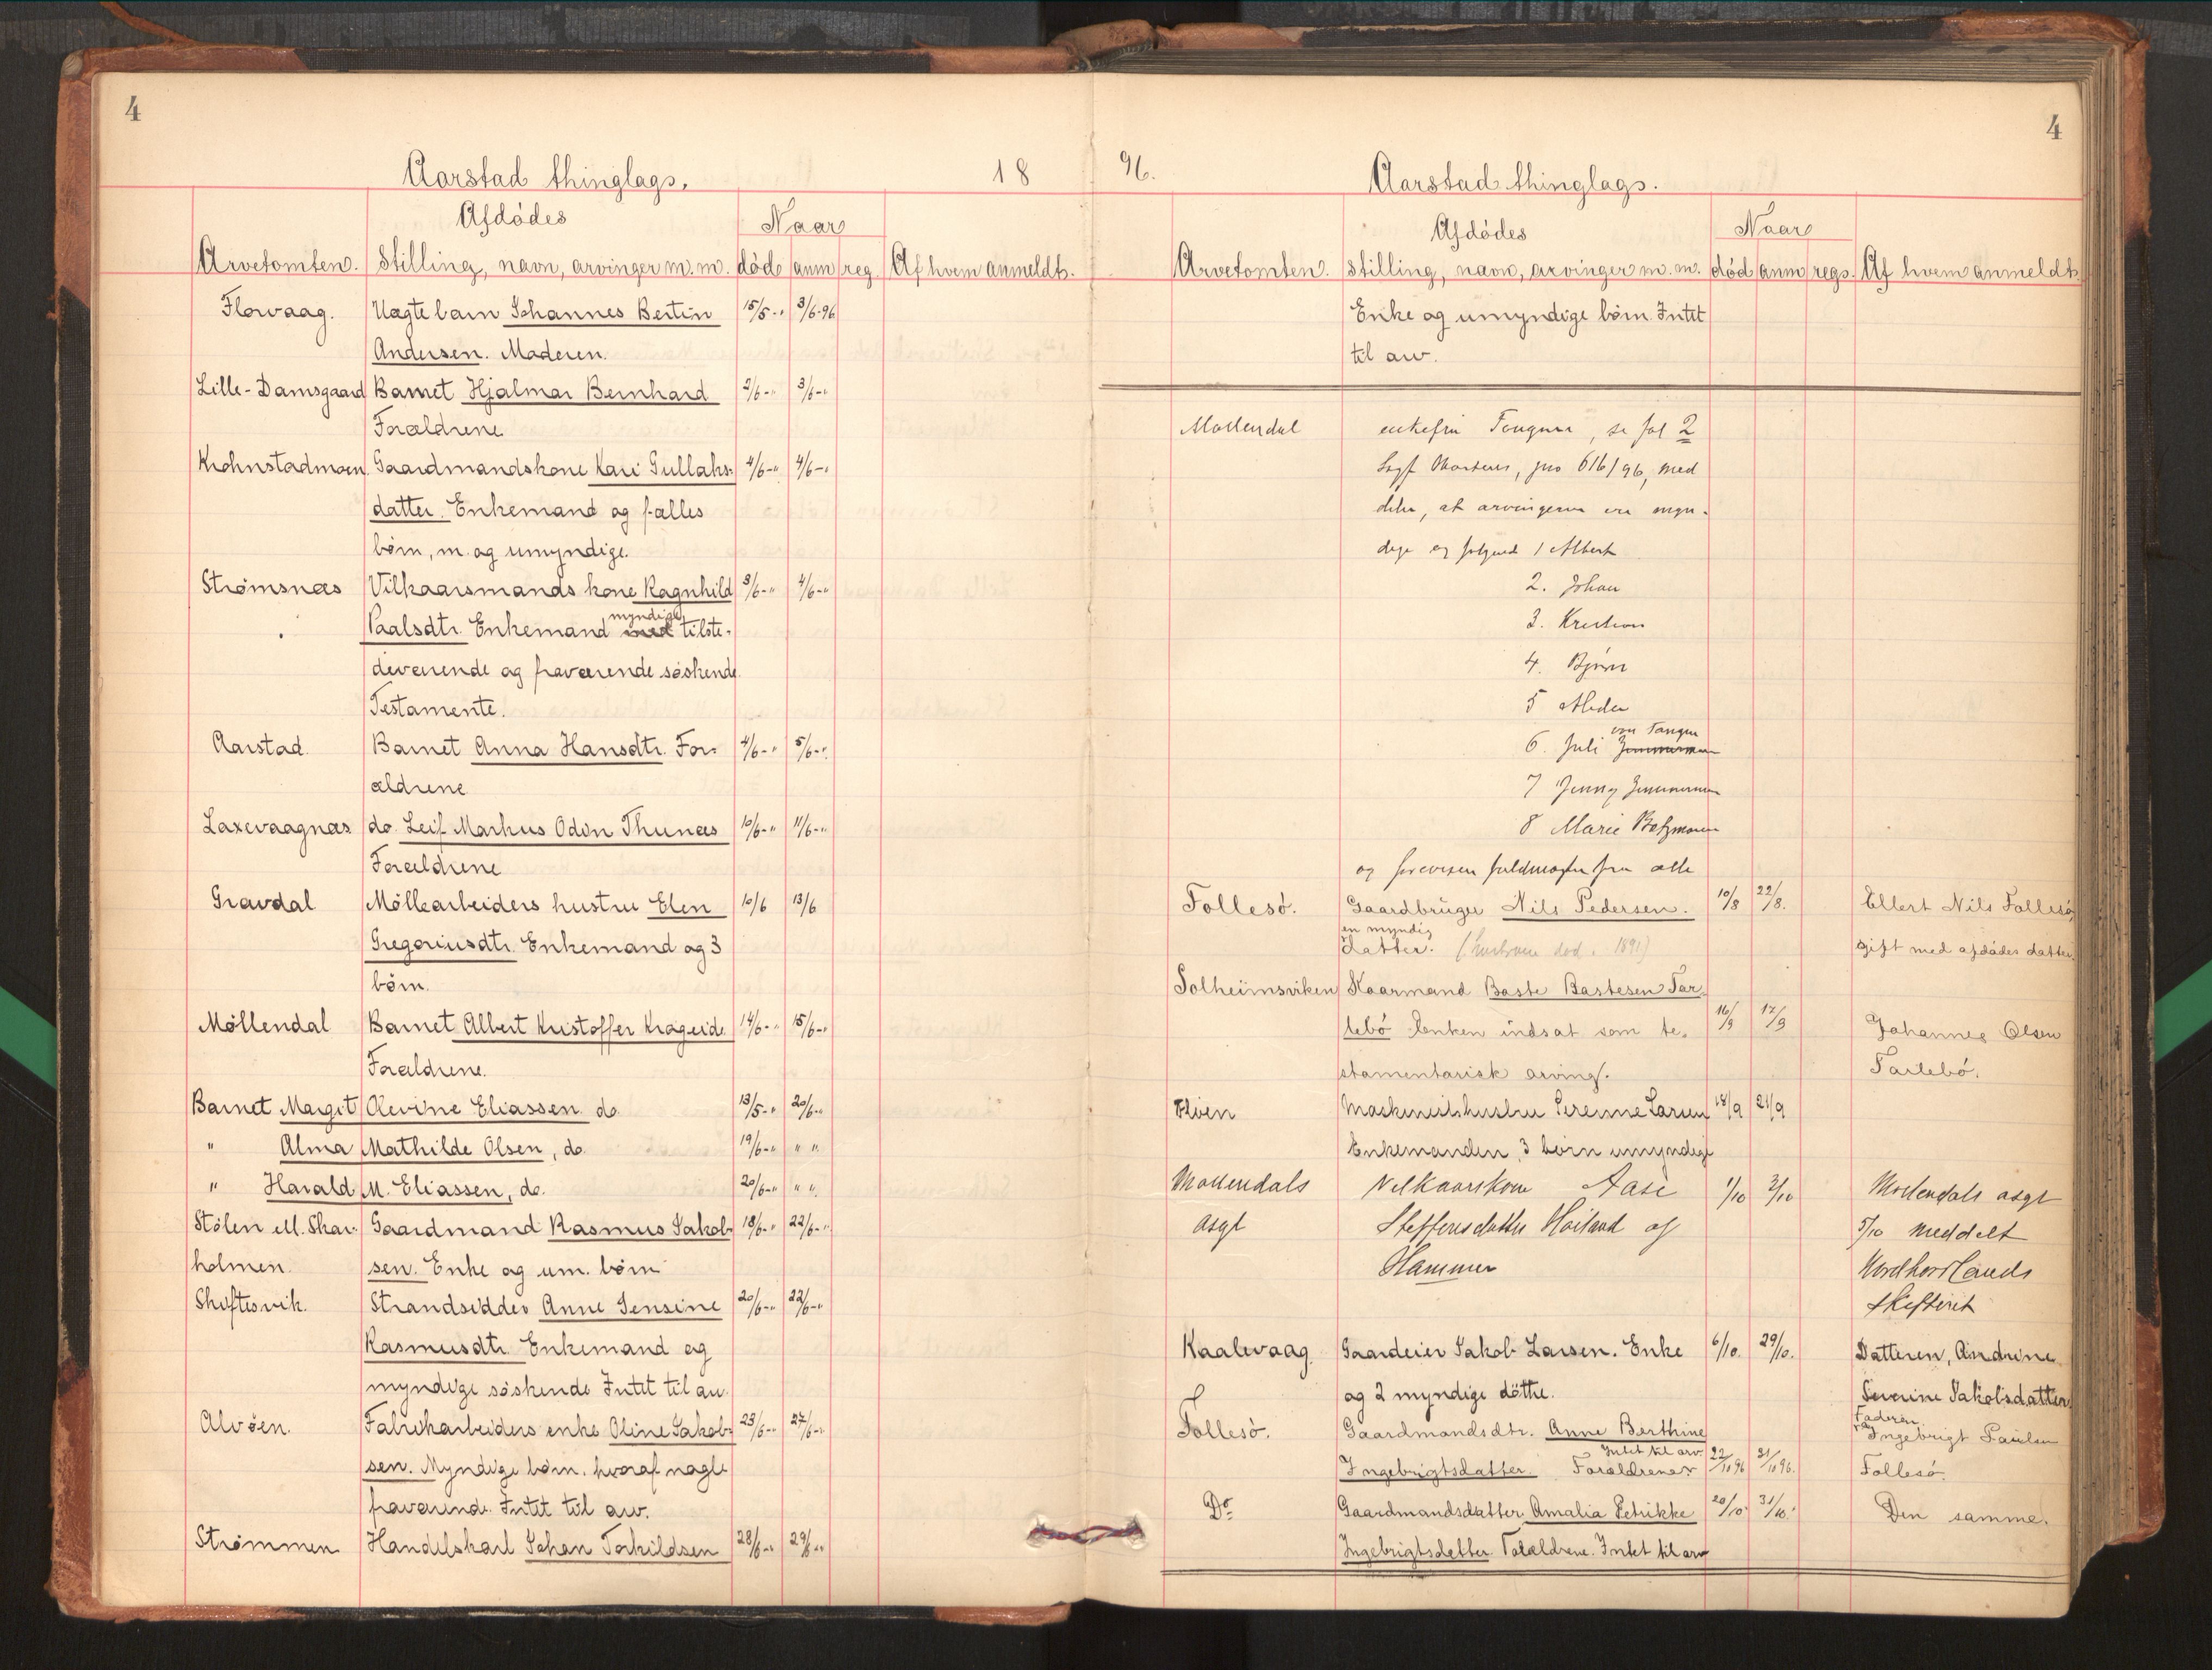 4
Aarstad thinglags.
18
Afdødes
Naar
Arvetomten. Stilling, navn, arvinger m. m. død anm reg. Af hvem anmeldt.
Flowaag. Uægte barn Johannes Bertin 15/5 -" 3/6-96
Andersen. Moderen.
Lille-Damsgaard Barnet Hjalmar Bernhard 2/6 -" 3/6 -"
Forældrene
Krohnstadmoen. Gaardmandskone Kari Gullaks- 4/6 -" 4/6 -"
datter. Enkemand og fælles
børn, m. og umyndige.
Strømsnæs Vilkaarsmands kone Ragnhild 3/6 -" 4/6 -"
myndige
Paalsdtr. Enkemand med tilste-
deværende og fraværende søskende
Testamente.
Aarstad Barnet Anna Hansdtr. For- 4/6 -" 5/6 -"
ældrene
Laxevaagnæs do. Leif Markus Odin Thunæs 10/6 -" 11/6 -"
Forældrene
Gravdal Møllearbeiders hustru Elen 10/6 13/6
Gregoriusdtr. Enkemand og 3
børn.
Møllendal Barnet Albert Kristoffer Krageide. 14/6 -" 15/6 -"
Forældrene.
Barnet Margit Olevine Eliassen do. 13/5 -" 20/6 -"
" Alma Mathilde Olsen, do. 19/6 -" " "
" Harald M. Eliassen, do. 20/6 -" " "
Stølen M. Skar- Gaardmand Rasmus Jakob- 18/6 -" 22/6 -"
holmen. sen. Enke og um. børn
Skiftesvik. Strandsidder Anne Jensine 20/6 -" 22/6 -"
Rasmusdtr. Enkemand og
myndige søskende Intet til arv.
Alvøen. Fabrikarbeiders enke Oline Jakob- 23/6 -" 27/6 -"
sen. Myndige børn, hvoraf nogle
fraværende. Intet til arv.
Strømmen Handelskarl Johan Torkildsen 28/6 -" 29/6 -"
96.
4
Aarstad thinglags.
Afdødes
Naar
Arvetomten. Stilling, navn, arvinger m. m. død anm regs. Af hvem anmeldt
Enke og umyndige børn. Intet
til arv.
Møllendal enkefru , se fol 2
Sagf , jno 616/96, med
deler, at arvingerne ere myn-
dige og følgende 1 Albert
2. Johan
3. Kristian
4. Bjørn
5
6. Juli
7 Jenny
8 Marie
og foreviser fuldmagter fra alle
Follesø. Gaardbruger Nils Pedersen. 10/8 22/8. Ellert Nils Follesø,
en myndig
Datter. (hustruen død. 1891) gift med afdødes datter.
Solheimsviken Kaarmand Baste Bastesen Tar-
lebø Enken indsat som te- 16/9 17/9 Johannes Olsen
stamentarisk arving. Tarlebø.
Eloen Maskinistshustru Serenne Larsen 18/9 21/9
Enkemanden, 3 børn umyndige
Møllendals Vilkaarskone Aase 1/10 2/10 Møllendals asyl
asyl Steffensdatter Høiland af 5/10 meddelt
Hammer Nordhorlands
skifteret
Kaalevaag. Gaardeier Jakob Larsen. Enke 6/10. 29/10. Datteren, Andrine
og 2 myndige døttre. Severine Jakobsdatter.
Follesø. Gaardmandsdtr. Anne Berthine Faderen, Ingebrigt Paulsen
Intet til arv
Ingebrigtsdatter. Forældrene. 22/10 96 31/10 96. Follesø.
Do Gaardmandsdatter Amalia Petrikke 20/10. 31/10. Den samme.
Ingebrigtsdatter. Forældrene. Intet til arv